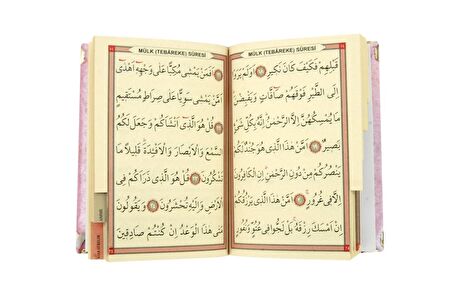 MÜLK (TEBÂREKE) SÛRESİ
قَبْلِهِمْ فَكَيْفَ كَانَ نَكِيرِ ﴿١٨﴾ اَوَلَمْ يَرَوْا
اِلَى الطَّيْرِ فَوْقَهُمْ صَٓافَّاتٍ وَيَقْبِضْنَ
مَا يُمْسِكُهُنَّ اِلَّا الرَّحْمٰنُ اِنَّهُ بِكُلِّ شَيْءٍ
بَصِيرٌ ﴿١٩﴾ اَمَّنْ هٰذَا الَّذِي هُوَ جُنْدٌ لَكُمْ
يَنْصُرُكُمْ مِنْ دُونِ الرَّحْمٰنِ اِنِ الْكَافِرُونَ
اِلَّا فِي غُرُورٍ ﴿٢٠﴾ اَمَّنْ هٰذَا الَّذِي يَرْزُقُكُمْ
اِنْ اَمْسَكَ رِزْقَهُ بَلْ لَجُّوا فِي عُتُوٍّ وَنُفُورٍ
MÜLK (TEBÂREKE) SÛRESİ
﴿٢١﴾ اَفَمَنْ يَمْشِي مُكِبًّا عَلٰى وَجْهِهِٓ اَهْدٰٓى
اَمَّنْ يَمْشِي سَوِيًّا عَلٰى صِرَاطٍ مُسْتَقِيمٍ
﴿٢٢﴾ قُلْ هُوَ الَّذِٓي اَنْشَاَكُمْ وَجَعَلَ لَكُمُ
السَّمْعَ وَالْاَبْصَارَ وَالْاَفْـِٔدَةَ قَلِيلًا مَا
تَشْكُرُونَ ﴿٢٣﴾ قُلْ هُوَ الَّذِي ذَرَاَكُمْ فِي
الْاَرْضِ وَاِلَيْهِ تُحْشَرُونَ ﴿٢٤﴾ وَيَقُولُونَ
مَتٰى هٰذَا الْوَعْدُ اِنْ كُنْتُمْ صَادِقِينَ